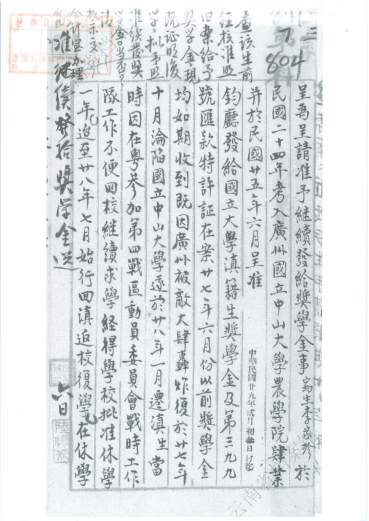 804
呈為呈請准予繼續發給獎學金事竊生李家升於
民國二十四年考入廣州國立中山大學農學院肄業
并於民國廿五年六月呈准
鈞廳發給國立大學滇籍生獎學金及第三九九
號匯款特許証在案廿七年六月份以前獎學金
均如期收到既因廣州被敵大肆轟炸復於廿七年
十月淪陷國立中山大學遂於廿八年一月遷滇生當
時因在粵參加第四戰區動員委員會戰時工作
隊工作不便回校繼續求學經得學校批准休學
一年迨至廿八年七月始行回滇返校復學在休學
中華民國廿九年貳月初
查該生前
經核准照
案給予
獎學金現
既証明復
學擬予照
准續發獎
准繼續發給獎學金
六日